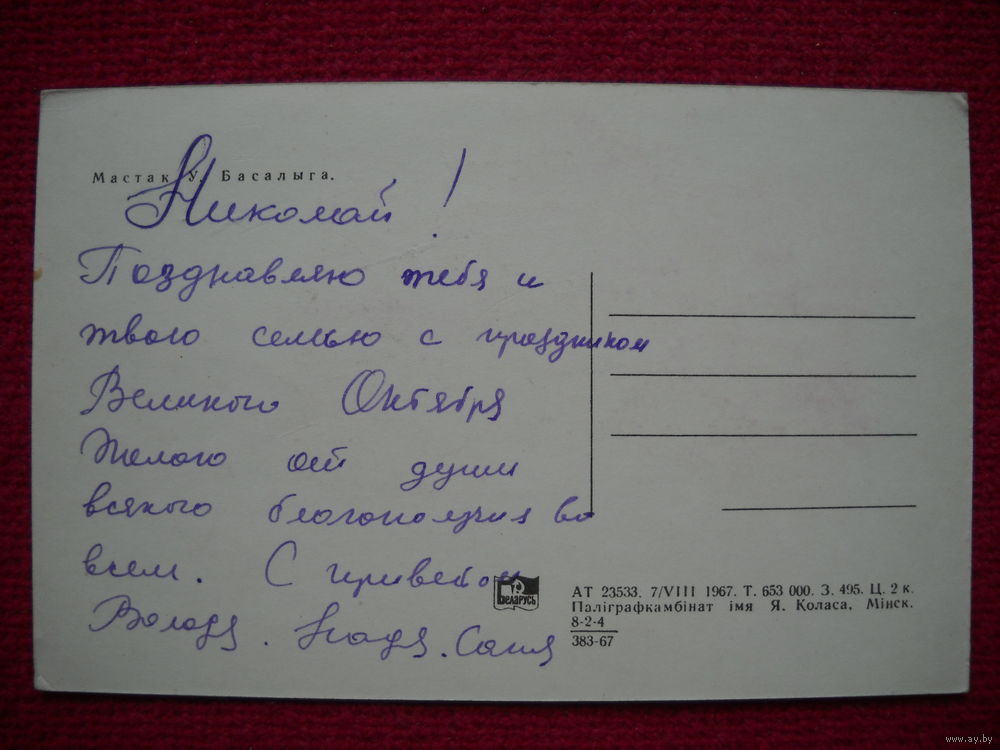 Мастак У. Басалыга.
Николай!
Поздравляю тебя и
твою семью с праздником
Великого Октября
Желаю от души
всякого благополучия во
всем. С приветом
Володя. Надя. Саня
БЕЛАРУСЬ
АТ 23533. 7/VIII 1967. Т. 653 000. З. 495. Ц. 2 к.
Паліграфкамбінат імя Я. Коласа, Мінск.
8-2-4
383-67
www.ay.by